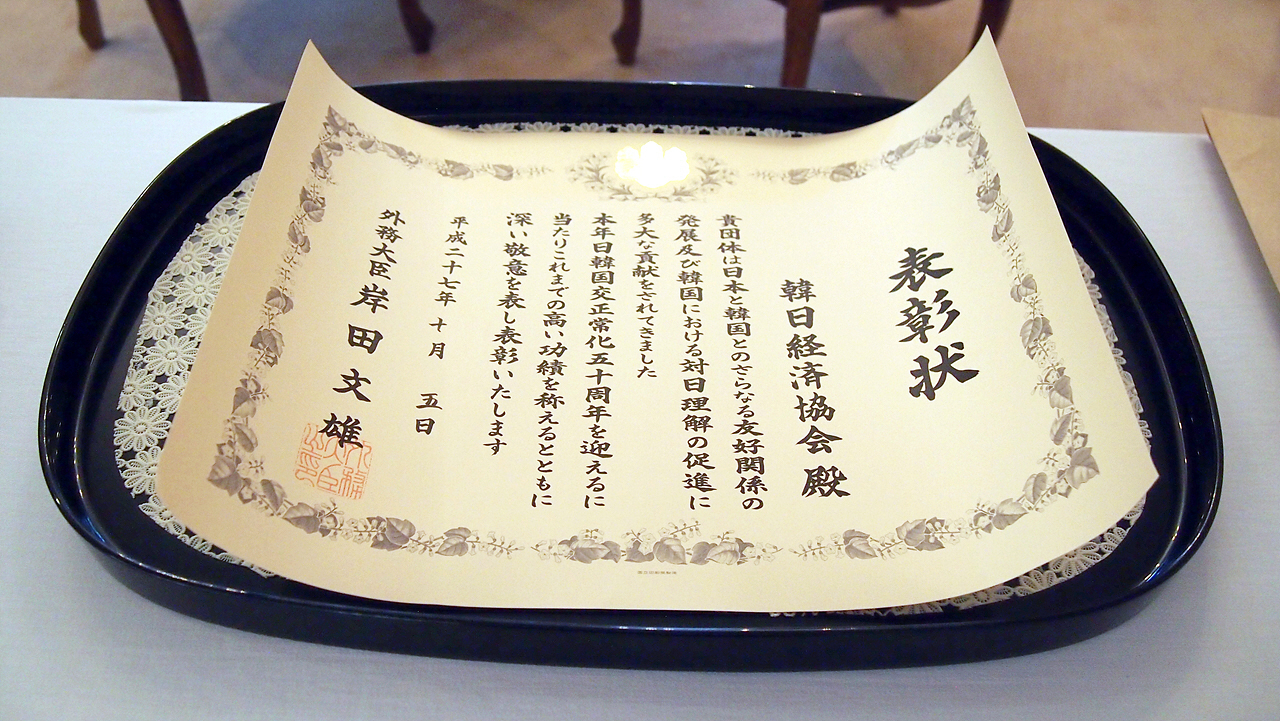 表彰状
韓日経済協会 殿
貴団体は日本と韓国とのさらなる友好関係の
発展及び韓国における対日理解の促進に
多大な貢献をされてきました
本年日韓国交正常化五十周年を迎えるに
当たりこれまでの高い功績を称えるとともに
深い敬意を表し表彰いたします
平成二十七年 十月 五日
外務大臣 岸田文雄